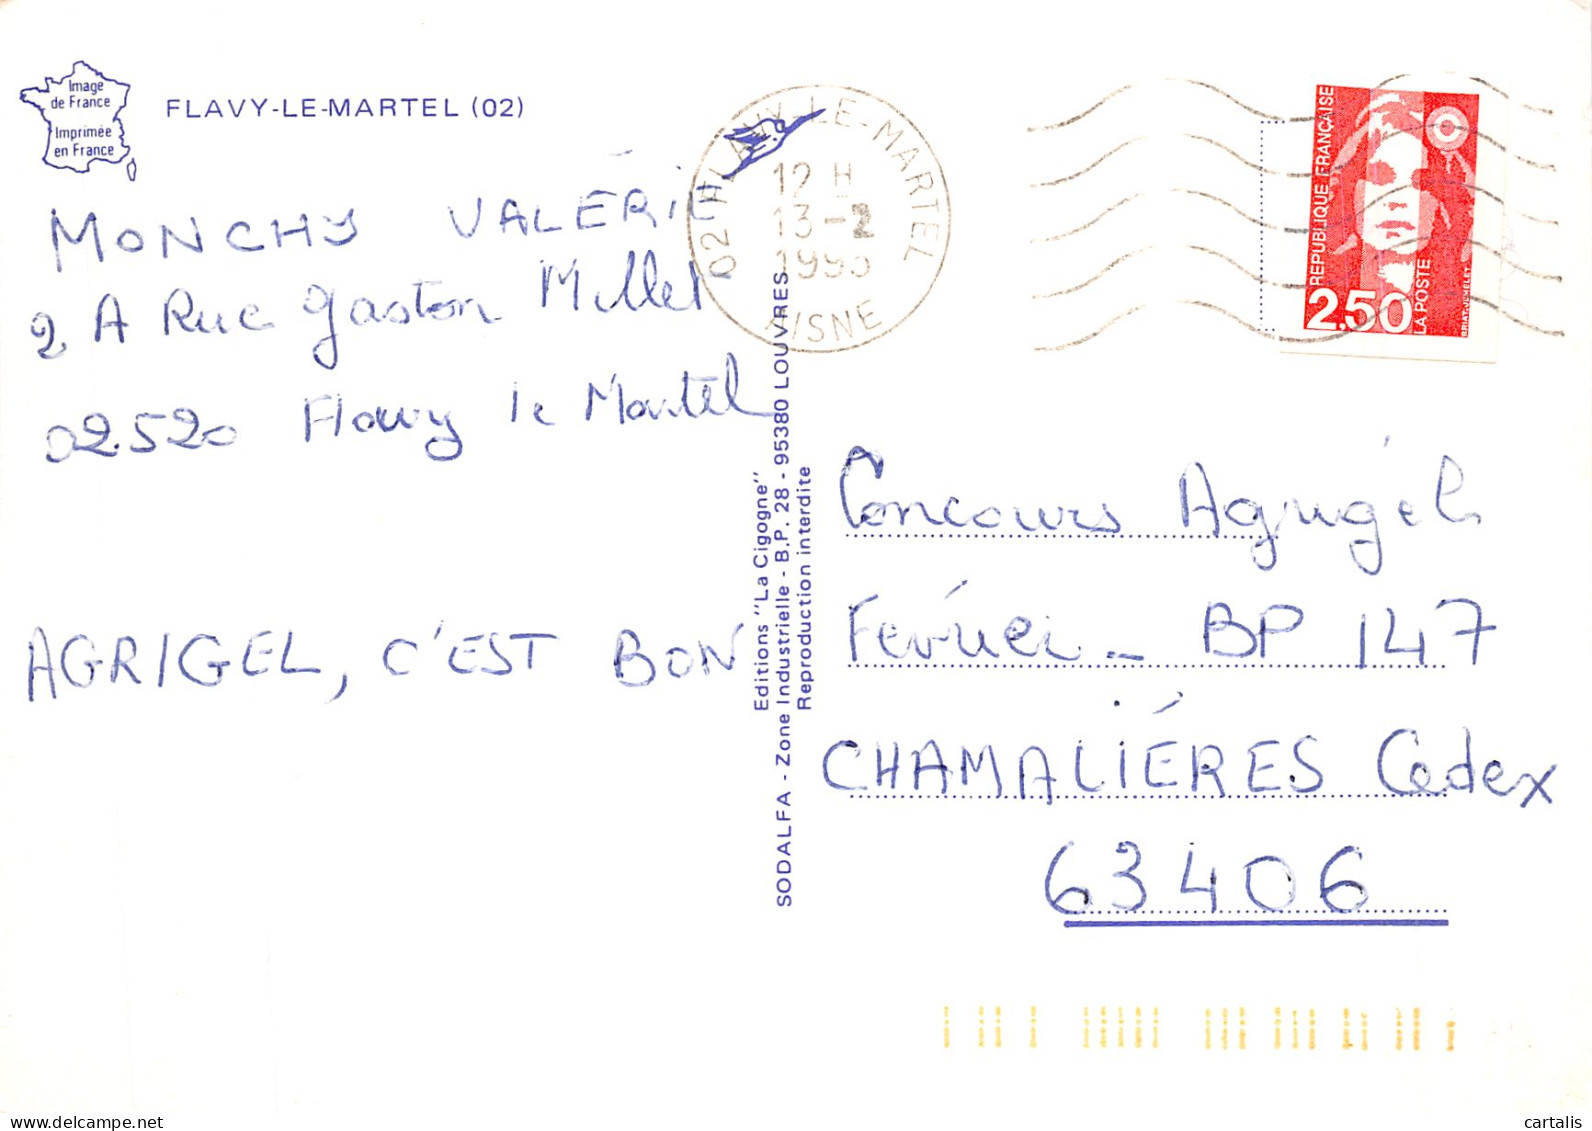 Image
de France
Imprimée
en France
FLAVY-LE-MARTEL (02)
MONCHY VALÉRIE
2 A Rue Gaston Millet
02520 Flavy le Martel
AGRIGEL, C'EST BON
02 FLAVY-LE-MARTEL
12 H
13-2
1995
AISNE
REPUBLIQUE FRANÇAISE
2.50
LA POSTE
BRIAT-JUMELET
Editions "La Cigogne"
SODALFA - Zone Industrielle - B.P. 28 - 95380 LOUVRES
Reproduction interdite
Concours Agrigel
Février - BP 147
CHAMALIÉRES Cedex
63406
delcampe.net
cartalis